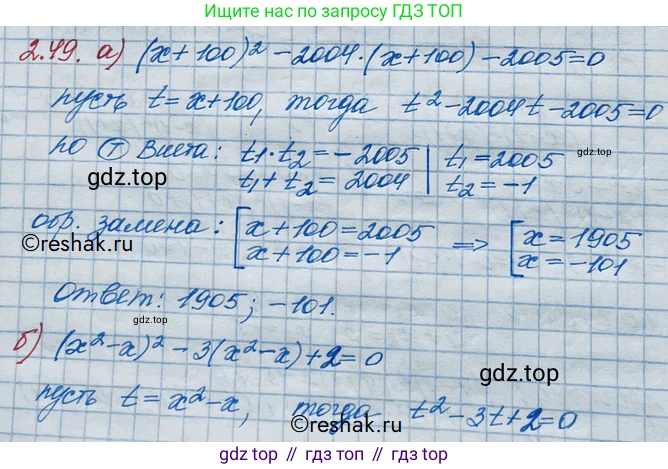 Ищите нас по запросу ГДЗ ТОП
2.49. а) (x+100)² - 2004·(x+100) - 2005=0
пусть t=x+100, тогда t²-2004t-2005=0
по Т Виета: t1·t2=-2005 | t1=2005
t1+t2=2004 | t2=-1
gdz.top
gdz.top
обр. замена: [x+100=2005 => [x=1905
x+100=-1 x=-101
©reshak.ru
Ответ: 1905; -101.
gdz.top
б) (x²-x)² - 3(x²-x)+2=0
gdz.top
пусть t=x²-x, тогда t²-3t+2=0
©reshak.ru
gdz.top // гдз.топ // gdz.top // гдз.топ